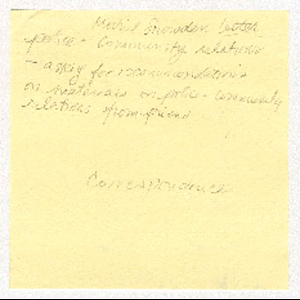 Snowden letter
police - Community relations
- asking for recommendations
on materials on police - community
relations from friend
Correspondence